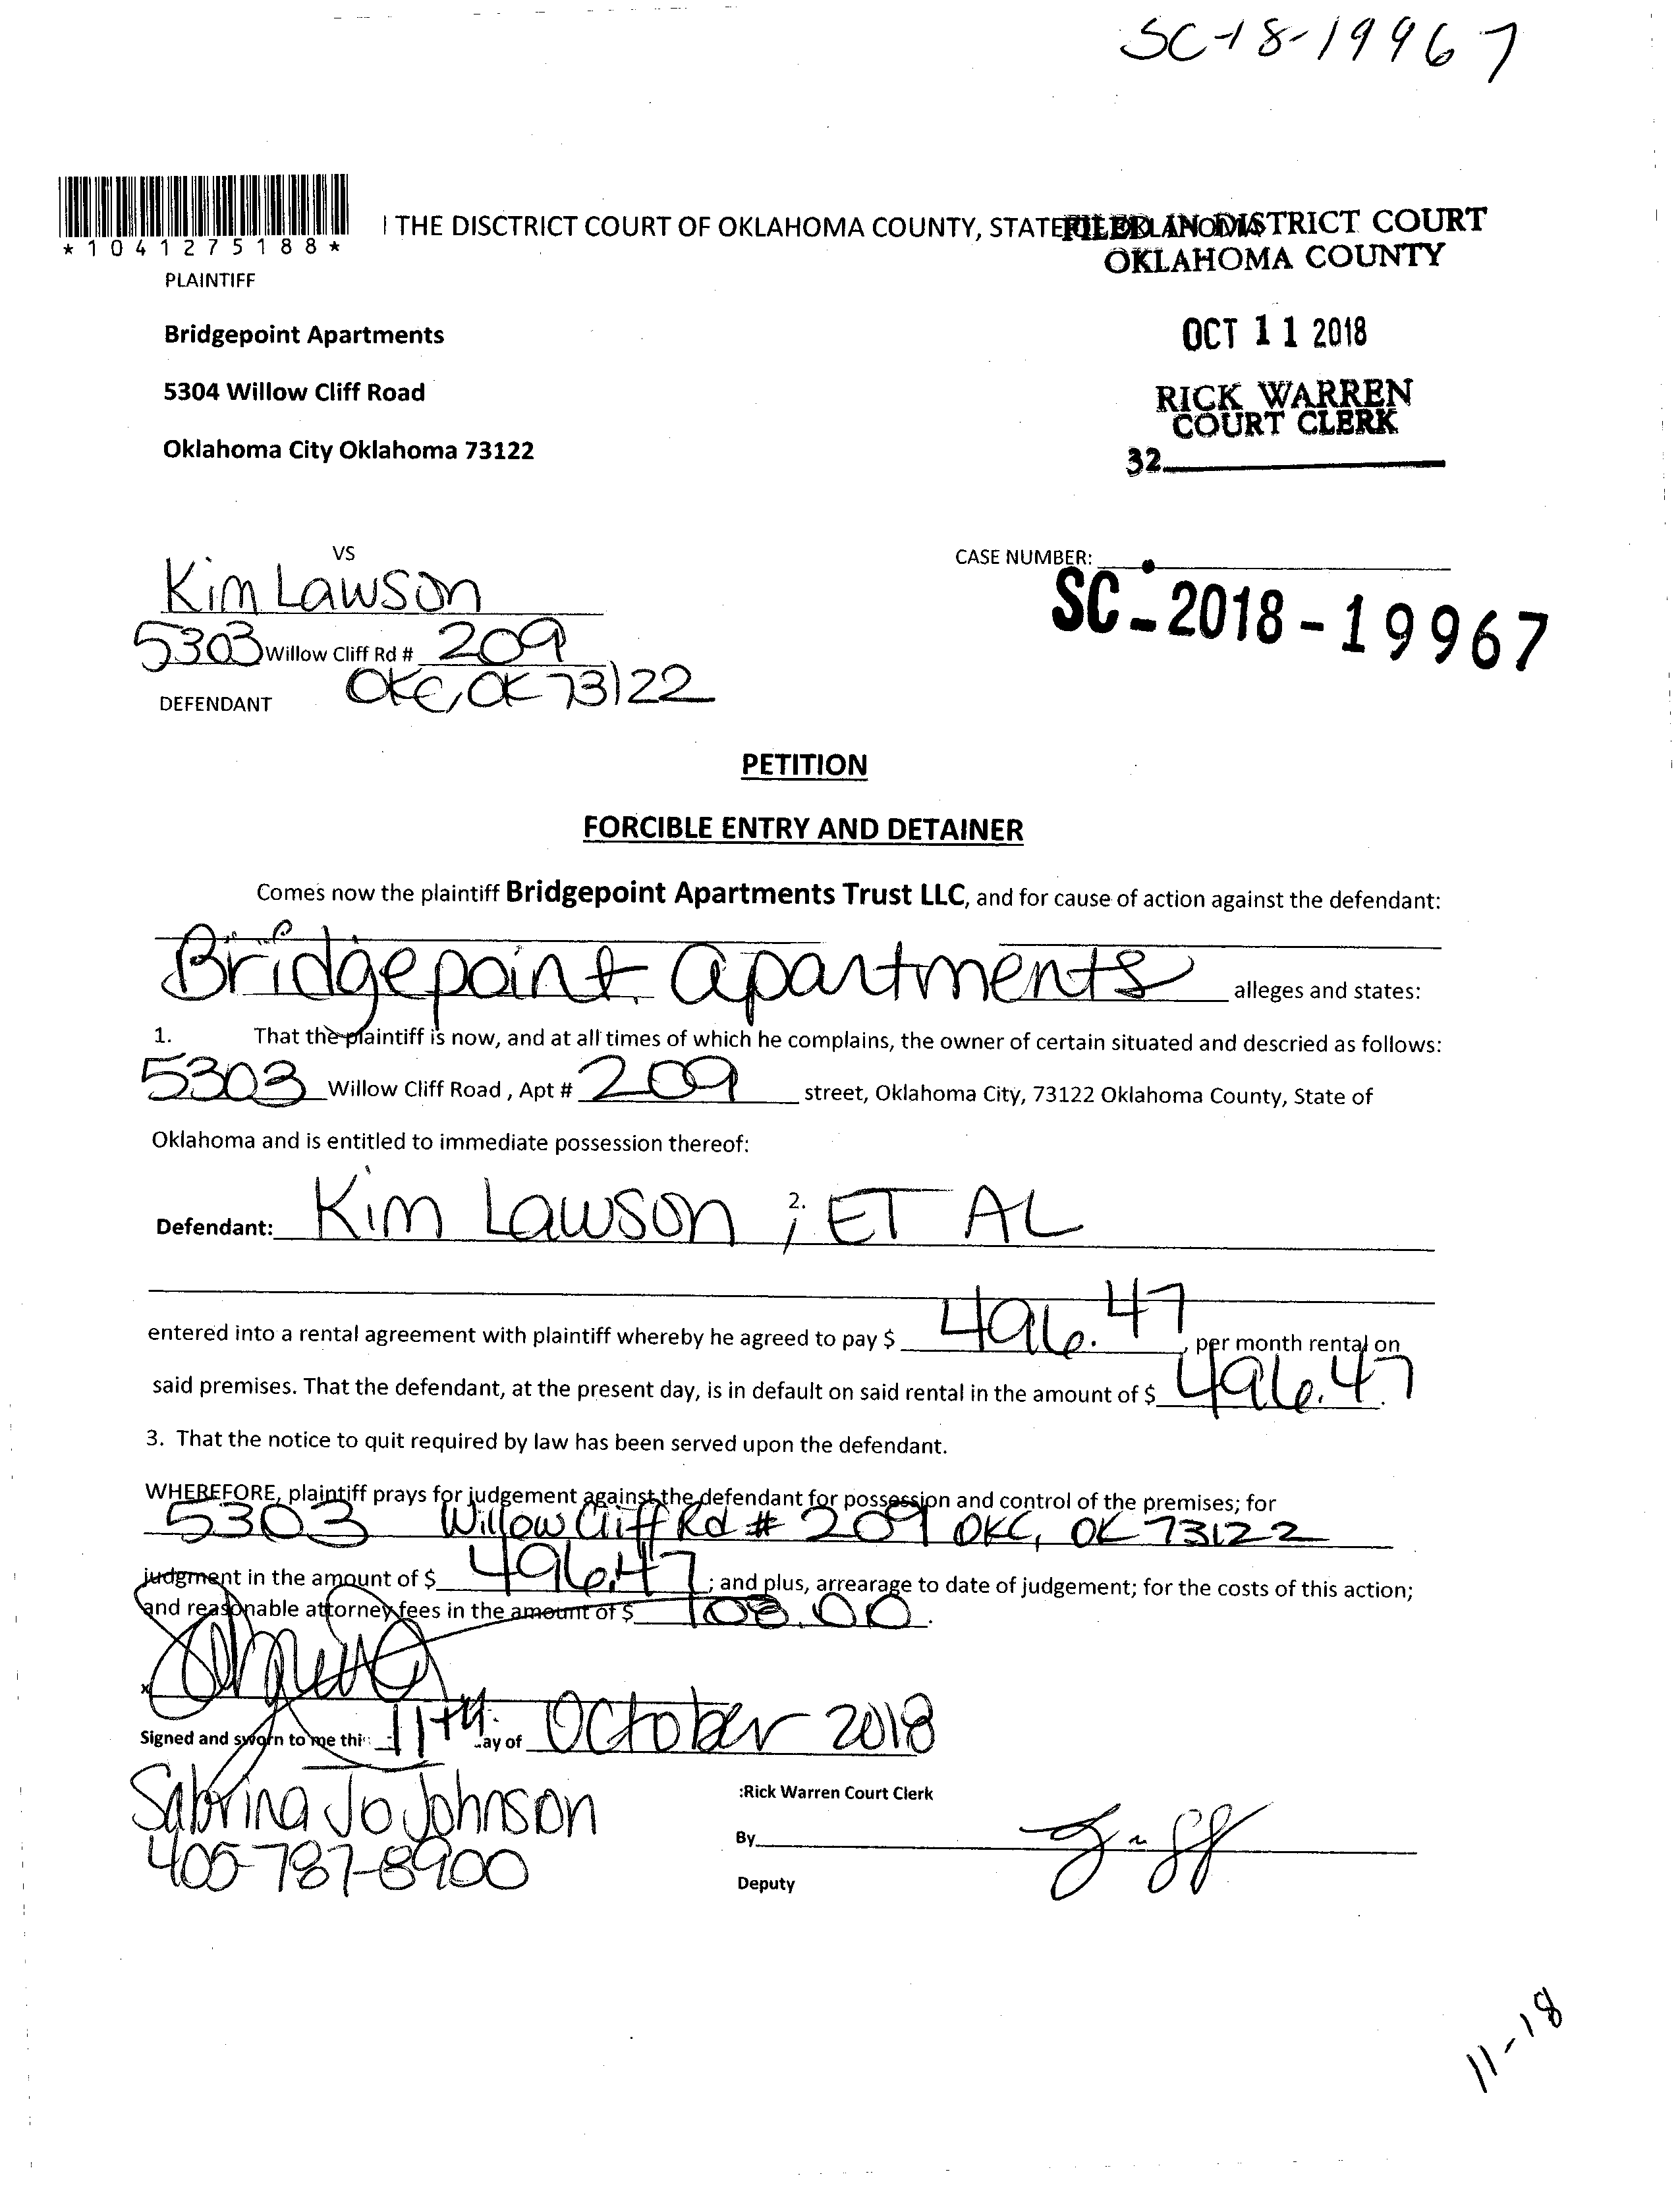 SC-18-19967
I THE DISCTRICT COURT OF OKLAHOMA COUNTY, STATE
FILED IN DISTRICT COURT
OKLAHOMA COUNTY
*1041275188*
PLAINTIFF
Bridgepoint Apartments
OCT 11 2018
5304 Willow Cliff Road
RICK WARREN
COURT CLERK
Oklahoma City Oklahoma 73122
32
VS
CASE NUMBER:
Kim Lawson
SC-2018-19967
5303 Willow Cliff Rd # 209
OKC, OK 73122
DEFENDANT
PETITION
FORCIBLE ENTRY AND DETAINER
Comes now the plaintiff Bridgepoint Apartments Trust LLC, and for cause of action against the defendant:
Bridgepoint apartments alleges and states:
1. That the plaintiff is now, and at all times of which he complains, the owner of certain situated and descried as follows:
5303 Willow Cliff Road , Apt # 209 street, Oklahoma City, 73122 Oklahoma County, State of
Oklahoma and is entitled to immediate possession thereof:
2.
Defendant: Kim Lawson ; ET AL
entered into a rental agreement with plaintiff whereby he agreed to pay $ 496.47, per month rental on
said premises. That the defendant, at the present day, is in default on said rental in the amount of $ 496.47.
3. That the notice to quit required by law has been served upon the defendant.
WHEREFORE, plaintiff prays for judgement against the defendant for possession and control of the premises; for
5303 Willow Cliff Rd # 209 OKC, OK 73122
judgment in the amount of $ 496.47; and plus, arrearage to date of judgement; for the costs of this action;
and reasonable attorney fees in the amount of $ 108.00.
x
Signed and sworn to me this 11th day of October 2018
Sabrina Jo Johnson
:Rick Warren Court Clerk
405-787-8900
By
Deputy
11-18